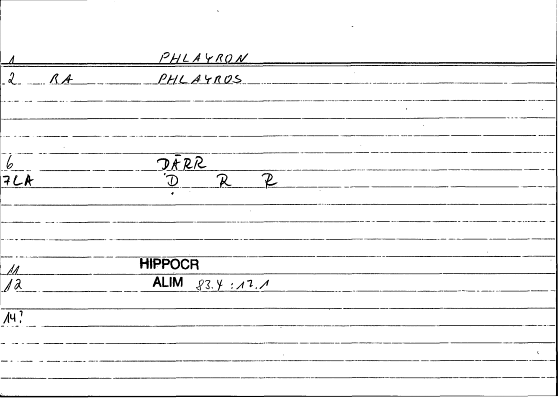 1 PHLAYRON
2 RA PHLAYROS
6 DĀRR
7 LA Ḍ R R
11 HIPPOCR
12 ALIM 83.4 : 12.1
14?